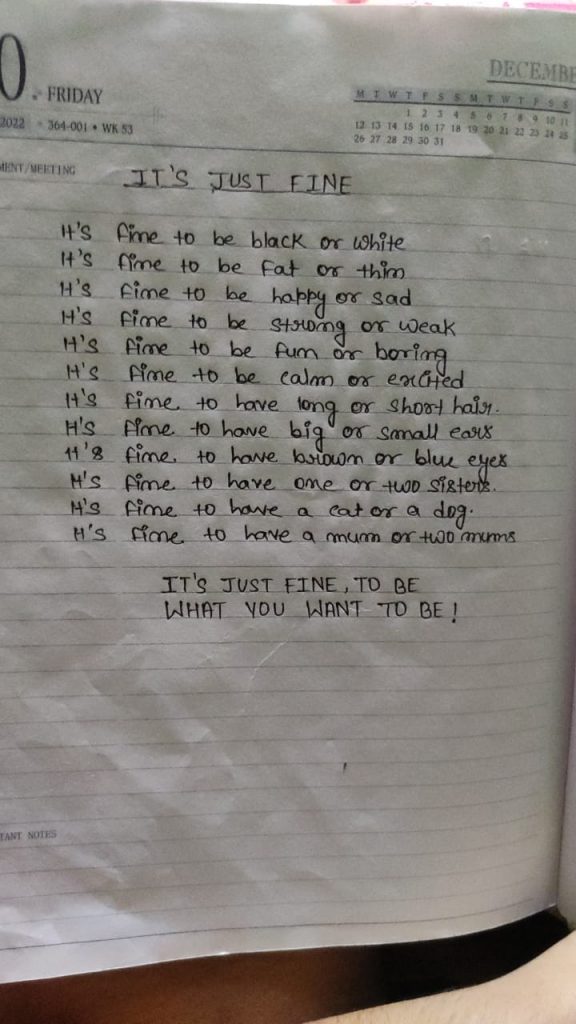 0. FRIDAY
DECEMBE
2022 • 364-001 • WK 53
M T W T F S S M T W T F S S
1 2 3 4 5 6 7 8 9 10 11
12 13 14 15 16 17 18 19 20 21 22 23 24 25
26 27 28 29 30 31
MENT/MEETING
IT'S JUST FINE
It's fine to be black or white
It's fine to be fat or thin
It's fine to be happy or sad
It's fine to be strong or weak
It's fine to be fun or boring
It's fine to be calm or excited
It's fine to have long or short hair.
It's fine to have big or small ears
It's fine to have brown or blue eyes
It's fine to have one or two sisters.
It's fine to have a cat or a dog.
It's fine to have a mum or two mums
IT'S JUST FINE, TO BE
WHAT YOU WANT TO BE!
TANT NOTES